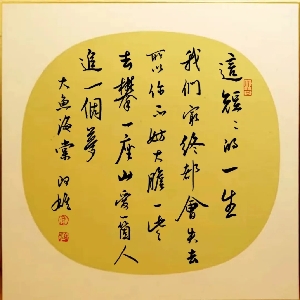 這短〻的一生
我們最終都會失去
所以你不妨大膽一些
去攀一座山愛一箇人
追一個夢
大魚海棠